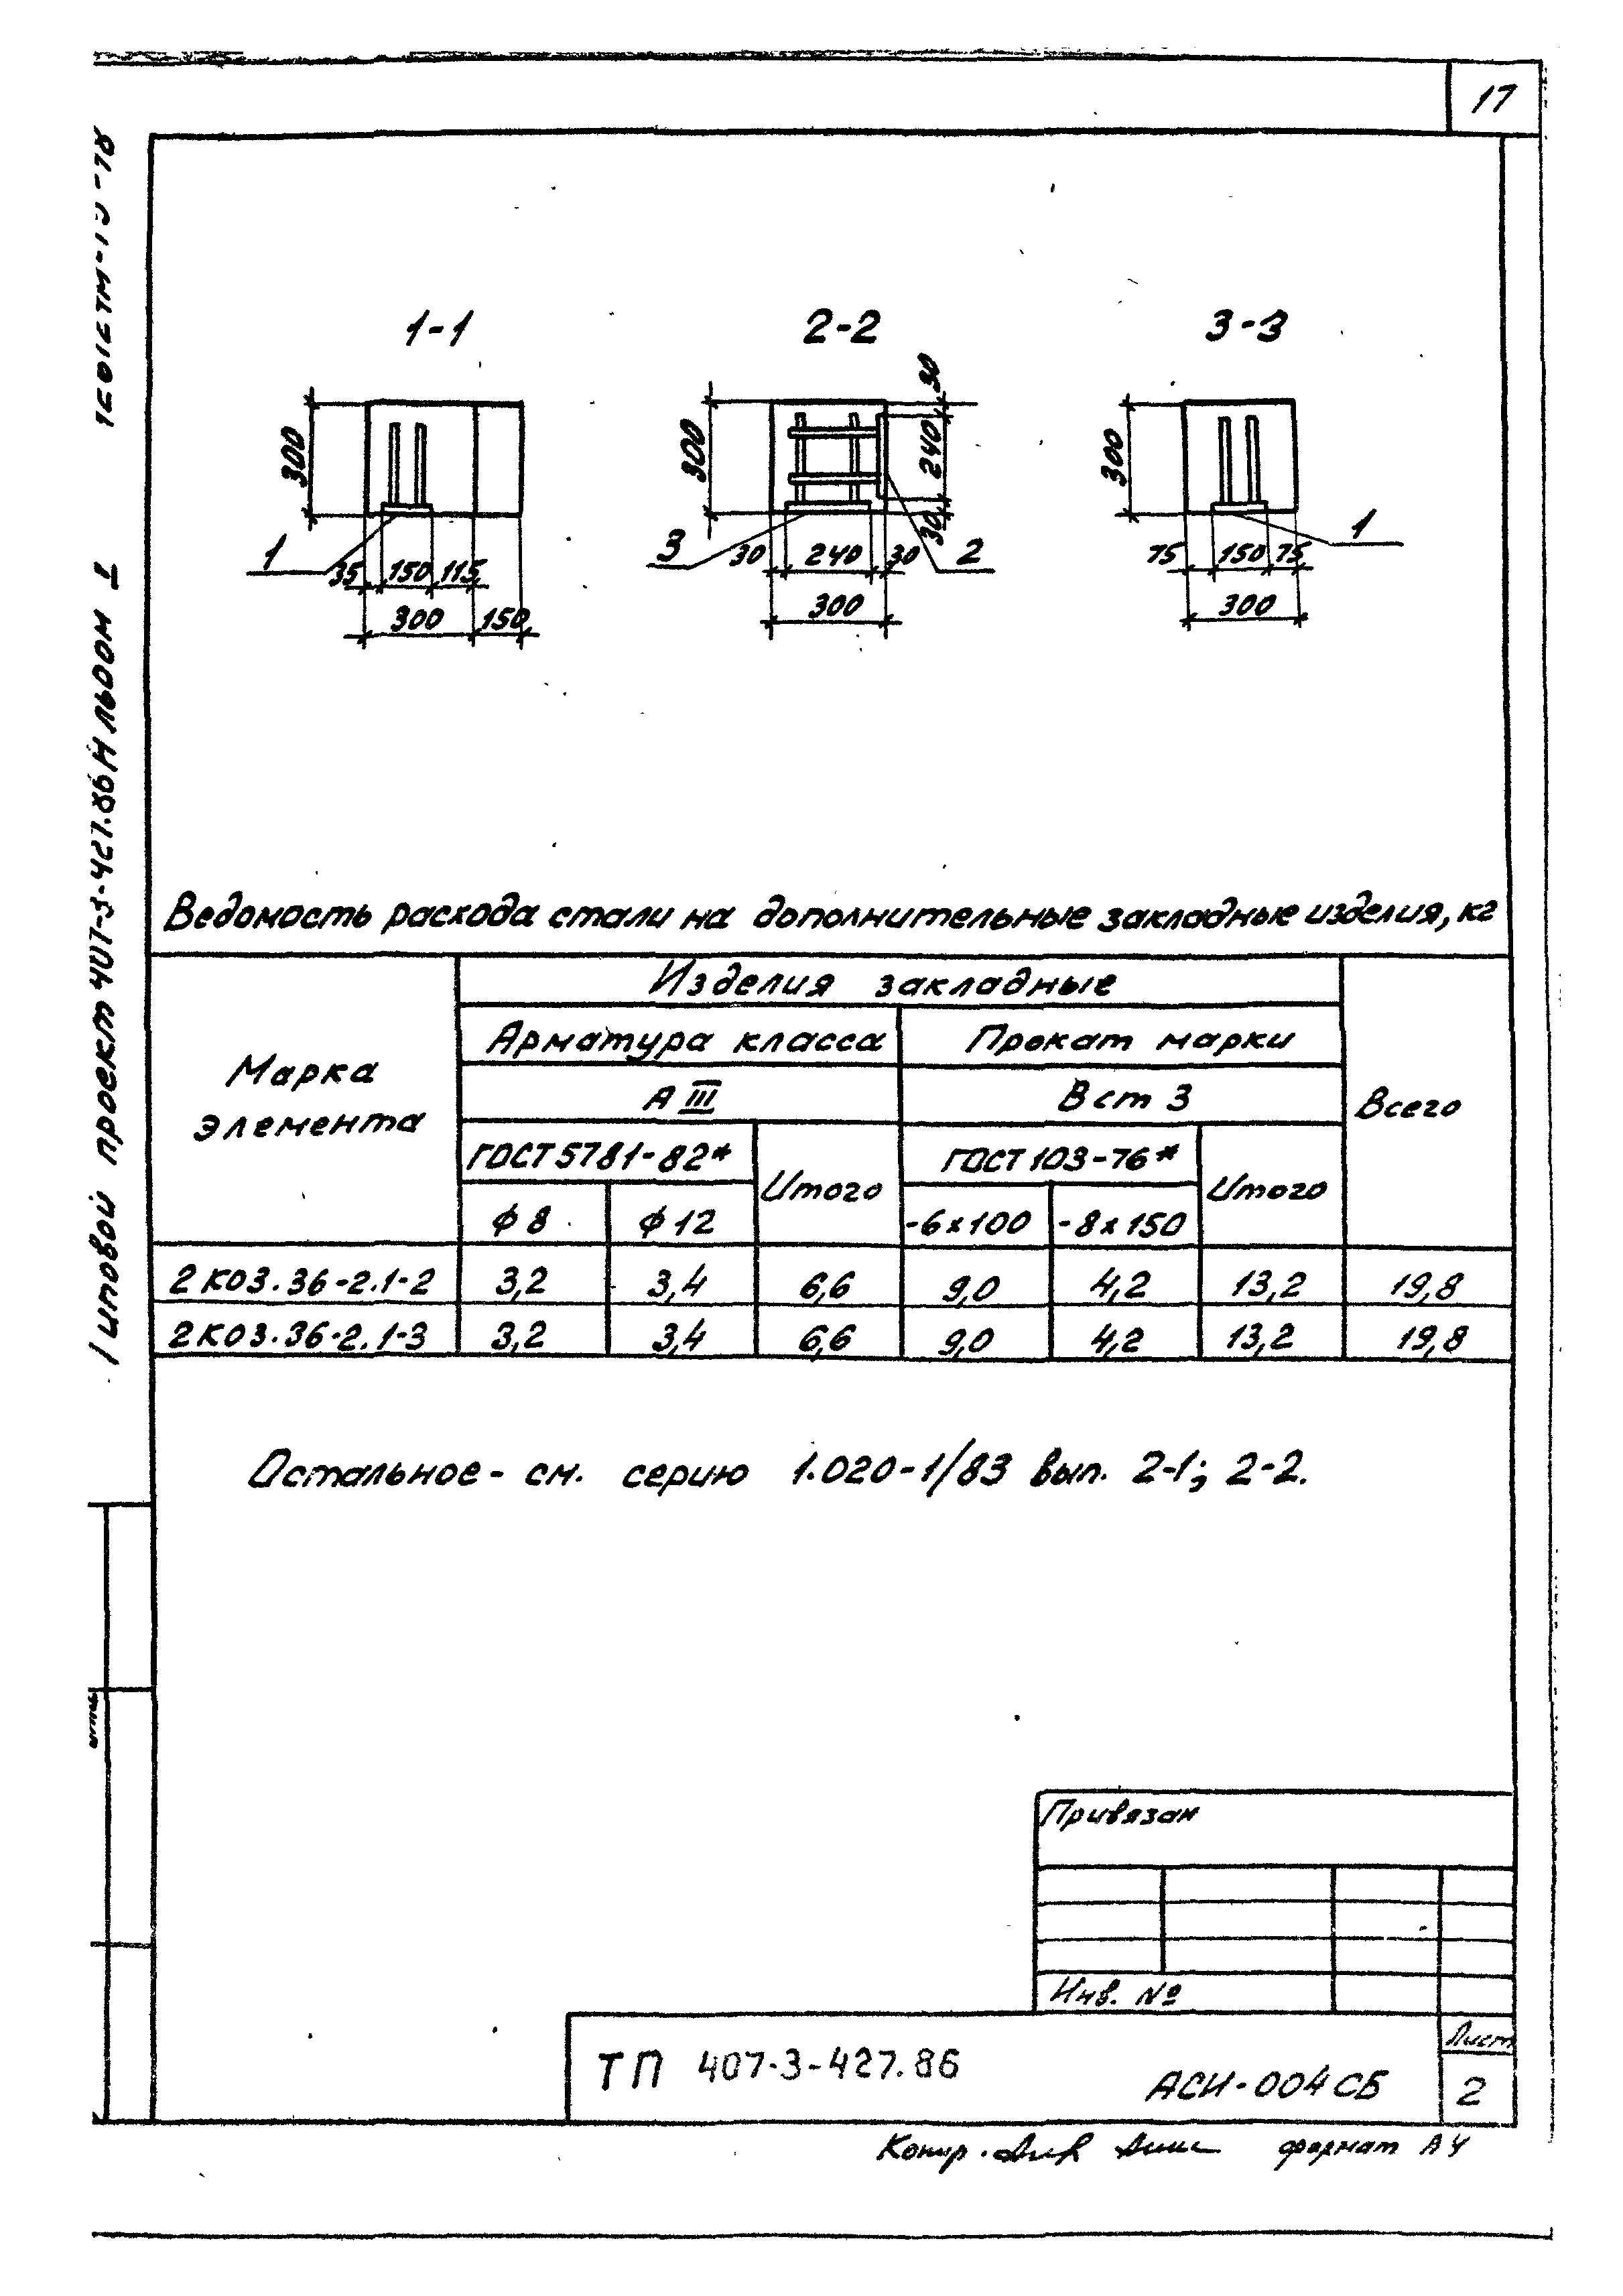 17
1-1
2-2
3-3
300
35 150 115
300 150
1
300
30
240
30
30 240 30
300
3
2
300
75 150 75
300
1
Типовой проект 407-3-427.86 Альбом I
Ведомость расхода стали на дополнительные закладные изделия, кг
Марка элемента
Изделия закладные
Всего
Арматура класса
Прокат марки
А III
В ст 3
ГОСТ 5781-82*
Итого
ГОСТ 103-76*
Итого
ф 8
ф 12
-6х100
-8х150
2 КО3.36-2.1-2 3,2 3,4 6,6 9,0 4,2 13,2 19,8
2 КО3.36-2.1-3 3,2 3,4 6,6 9,0 4,2 13,2 19,8
Остальное - см. серию 1.020-1/83 вып. 2-1; 2-2.
Привязан
Инв. №
ТП 407-3-427.86
АСИ-004 СБ
Лист
2
Копир.
формат А4